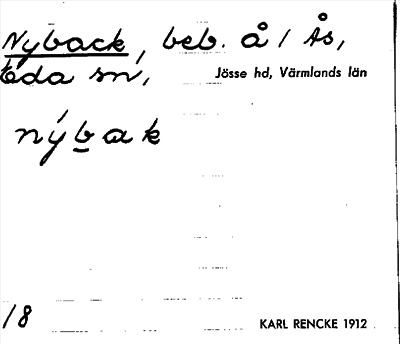 Nyback, beb. å / Ås,
Eda sn,
Jösse hd, Värmlands län
nýbak
18
KARL RENCKE 1912